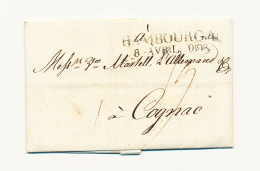 à
HAMBOURG.4.
8 AVRIL 1808
Mess.rs V.ve Martell Lallemand & C.
à Cognac